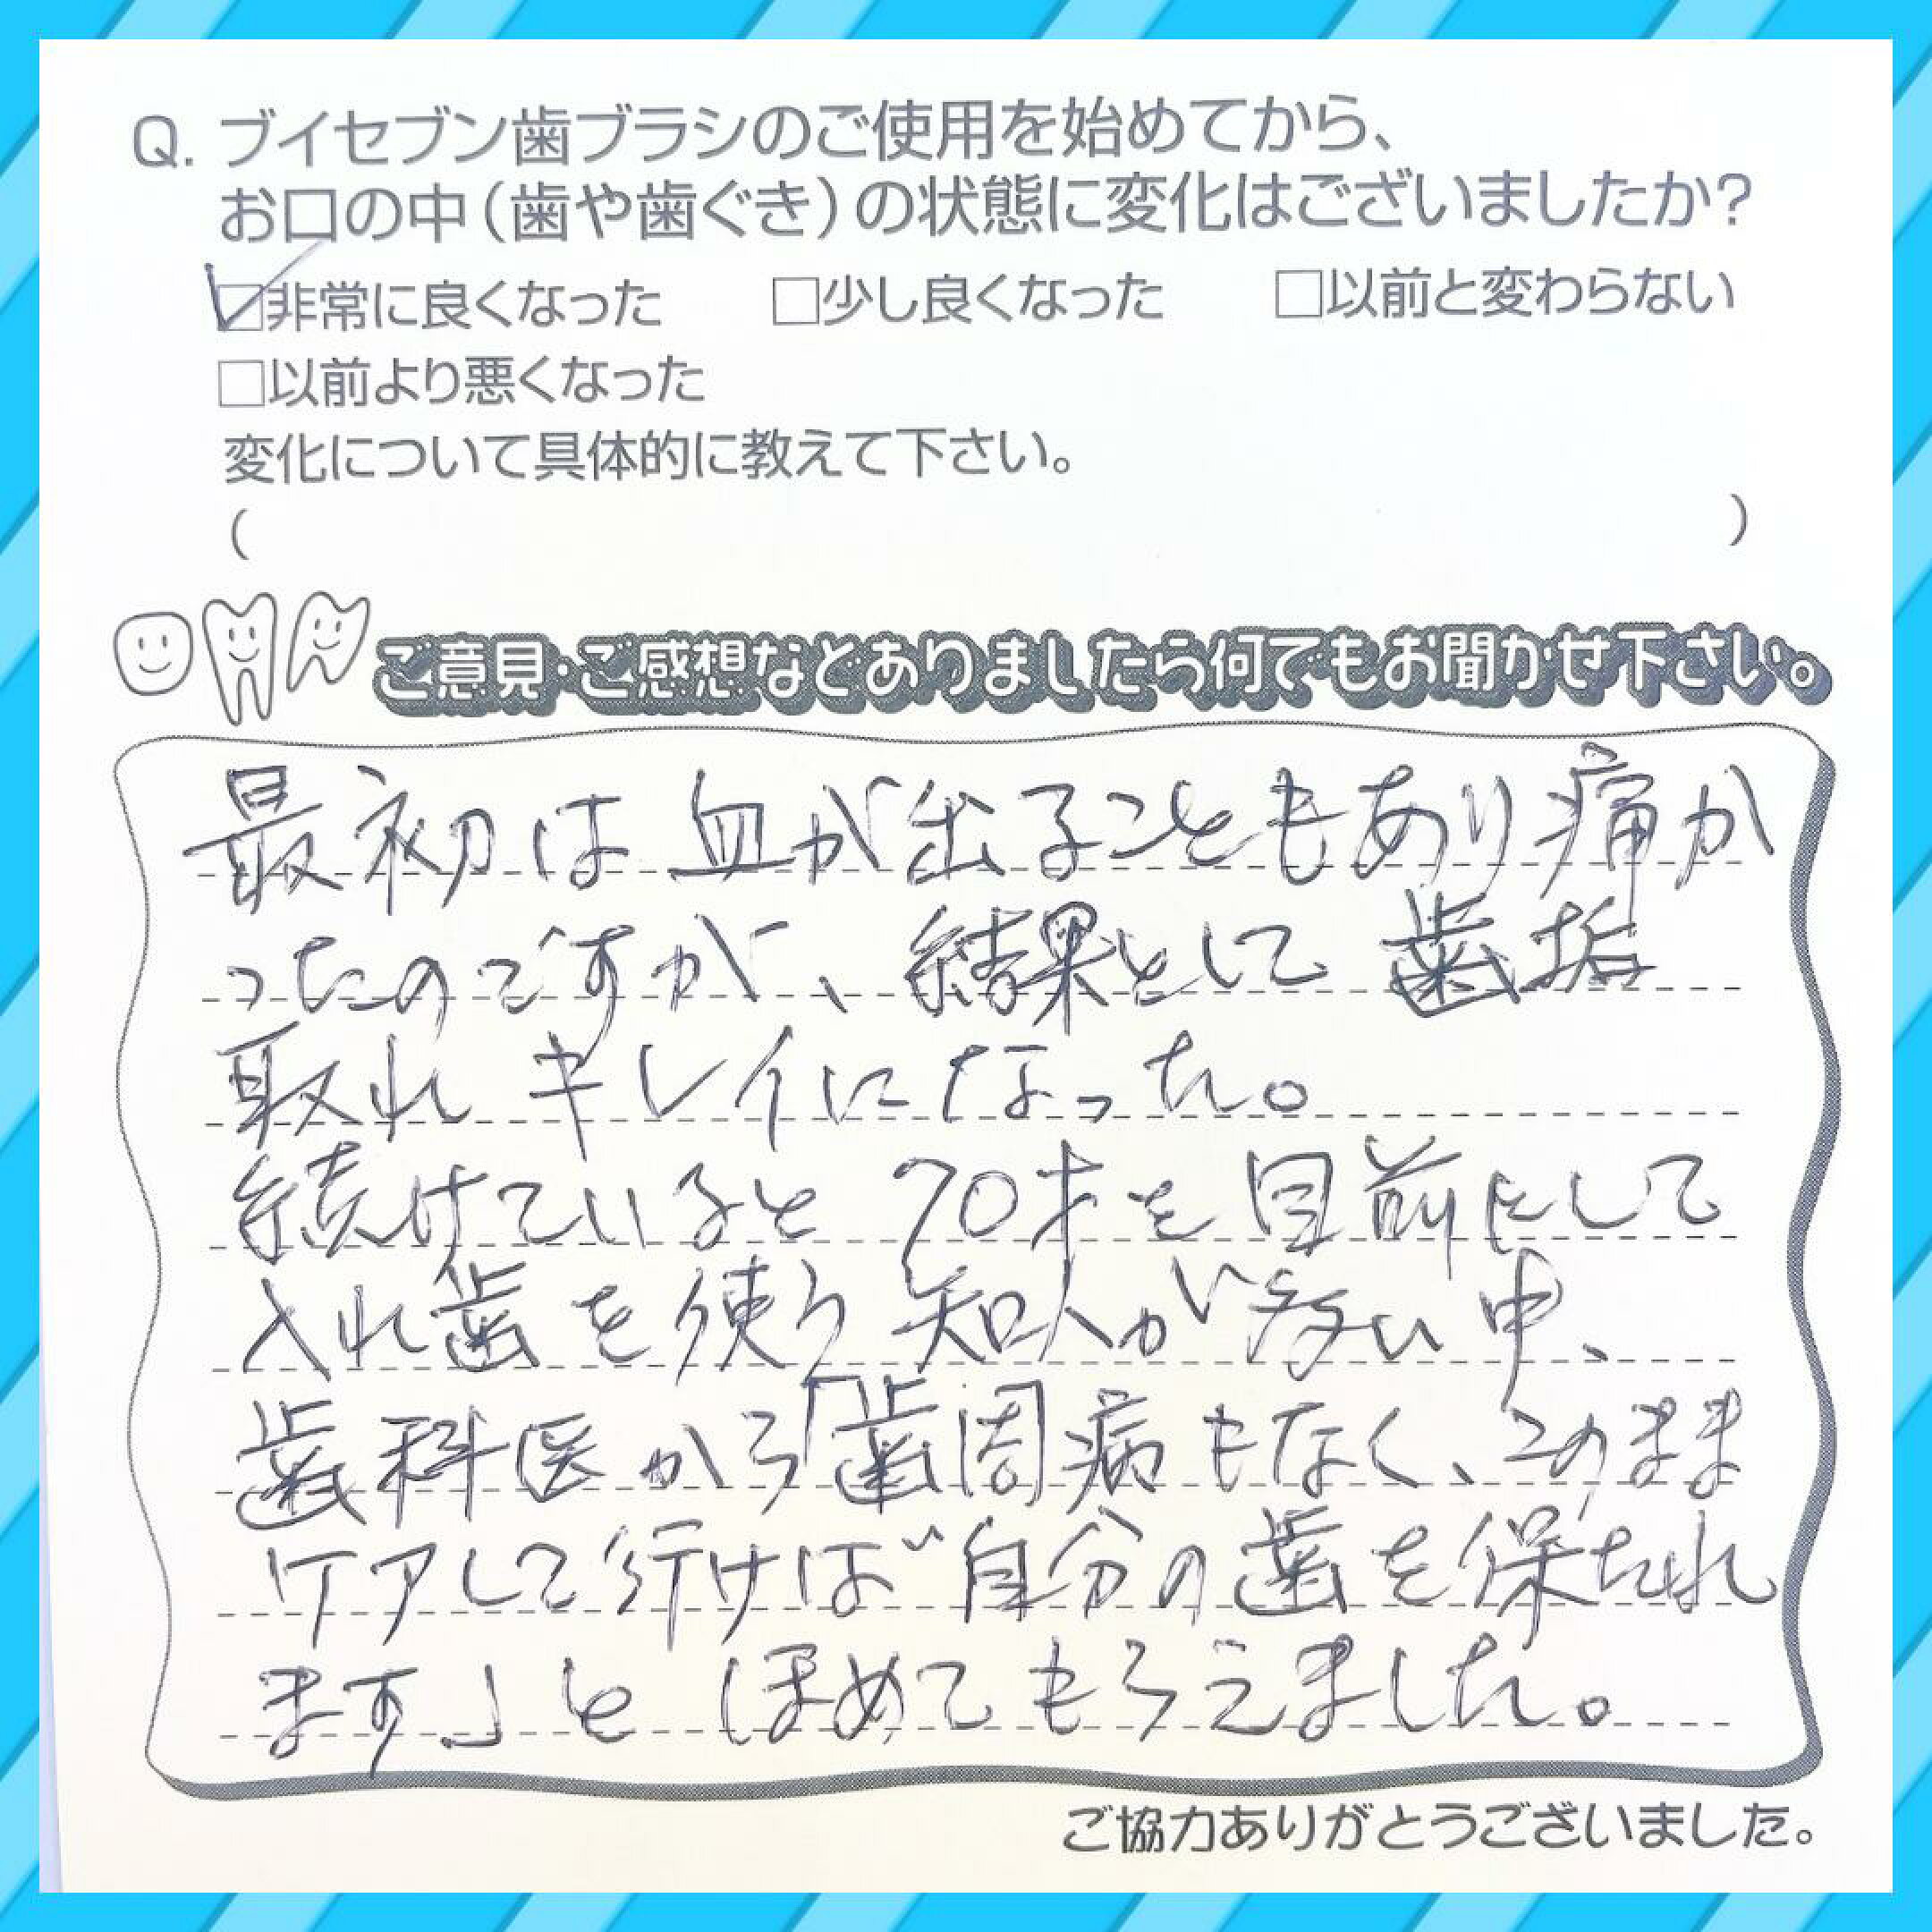 Q. ブイセブン歯ブラシのご使用を始めてから、
お口の中（歯や歯ぐき）の状態に変化はございましたか？
☑非常に良くなった □少し良くなった □以前と変わらない
□以前より悪くなった
変化について具体的に教えて下さい。
（ ）
ご意見・ご感想などありましたら何でもお聞かせ下さい。
最初は血が出ることもあり痛か
ったのですが、結果として歯垢
取れキレイになった。
続けていると70才を目前にして
入れ歯を使う知人が多い中、
歯科医から「歯周病もなく、このまま
ケアして行けば自分の歯を保たれ
ます」とほめてもらえました。
ご協力ありがとうございました。